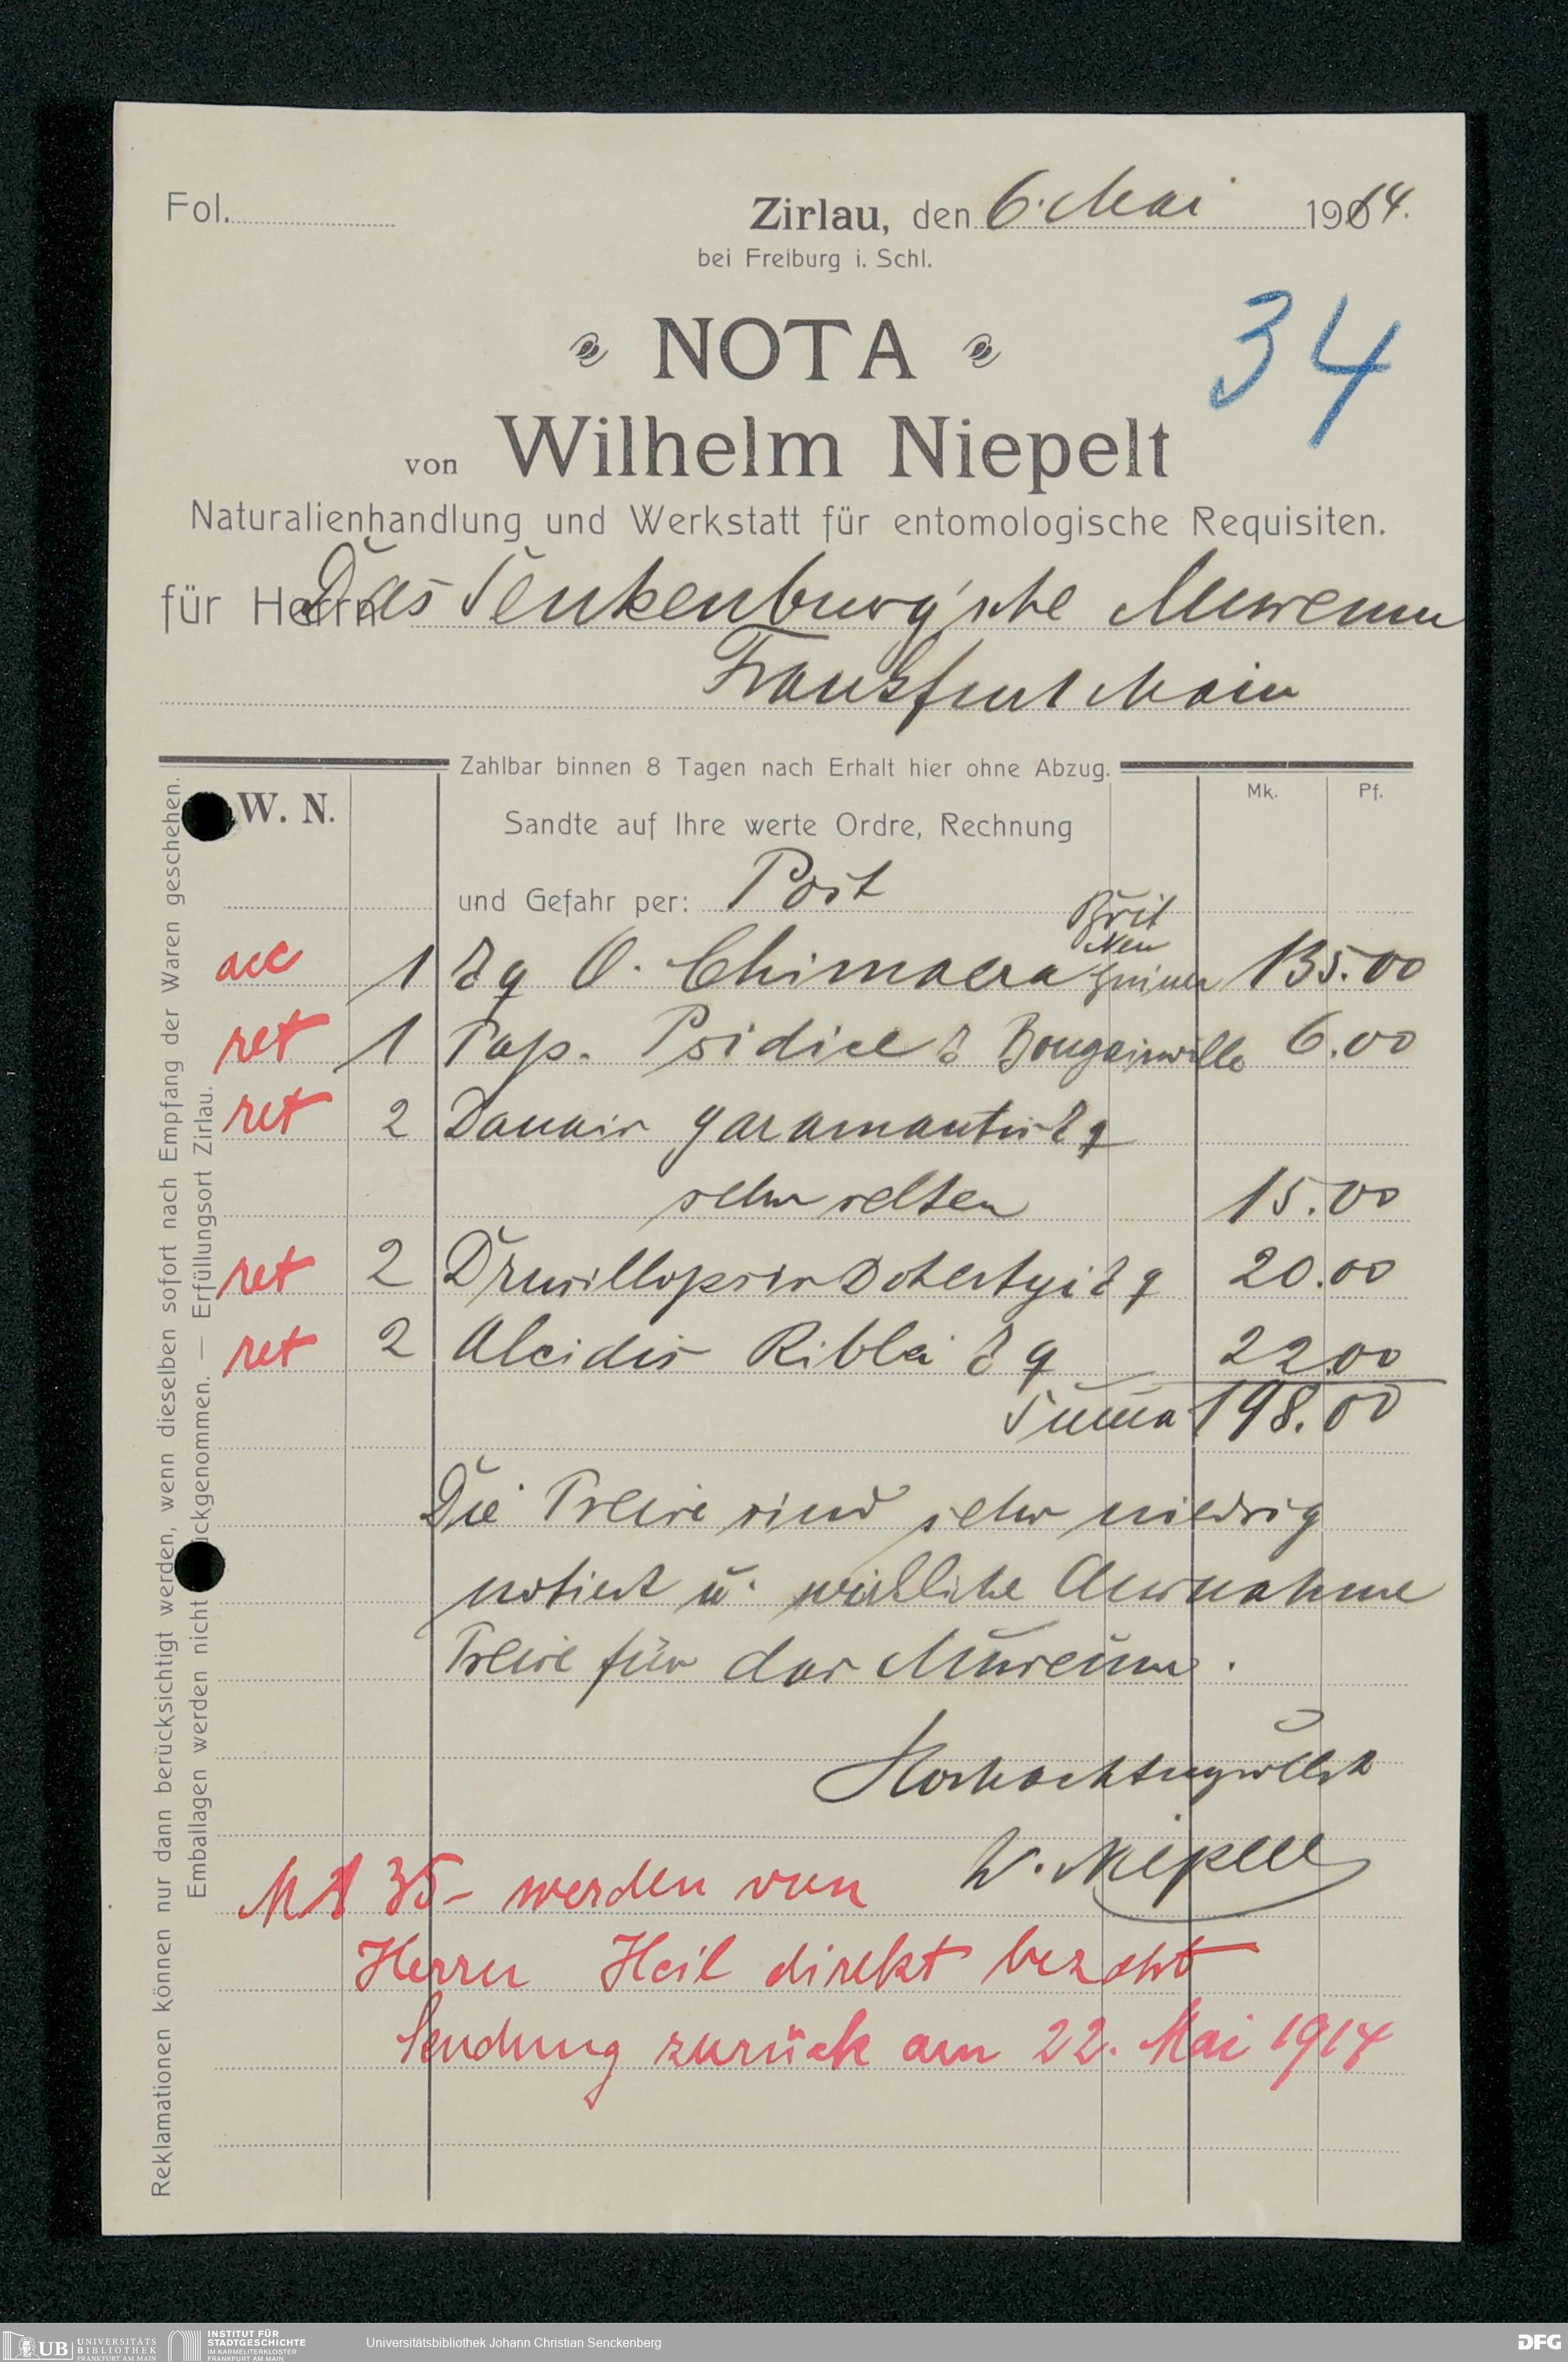 Fol.
Zirlau, den 6. Mai 1914.
bei Freiburg i. Schl.
34
NOTA
von Wilhelm Niepelt
Naturalienhandlung und Werkstatt für entomologische Requisiten.
für Herrn Das Senkenburg'sche Museum
Frankfurt Main
Zahlbar binnen 8 Tagen nach Erhalt hier ohne Abzug.
W. N.
Mk. Pf.
Sandte auf Ihre werte Ordre, Rechnung
und Gefahr per: Post
Brit
Neu
acc 1 ♂ ♀ O. Chimaera Guinea 135.00
ret 1 Pap. Psidice ♂ Bougainville 6.00
ret 2 Danais garamantis ♂ ♀
sehr selten 15.00
ret 2 Drusillopsis Dohertyi ♂ ♀ 20.00
ret 2 Alcidis Ribbei ♂ ♀ 22.00
Summa 198.00
Die Preise sind sehr niedrig
notiert u. wirkliche Ausnahme
Preise für das Museum.
Hochachtungsvollst
W. Niepelt
M 135- werden von
Herrn Heil direkt bezahlt
Sendung zurück am 22. Mai 1914
Reklamationen können nur dann berücksichtigt werden, wenn dieselben sofort nach Empfang der Waren geschehen.
Emballagen werden nicht zurückgenommen. — Erfüllungsort Zirlau.
UB UNIVERSITÄTS
BIBLIOTHEK
FRANKFURT AM MAIN
INSTITUT FÜR
STADTGESCHICHTE
IM KARMELITERKLOSTER
FRANKFURT AM MAIN
Universitätsbibliothek Johann Christian Senckenberg
DFG